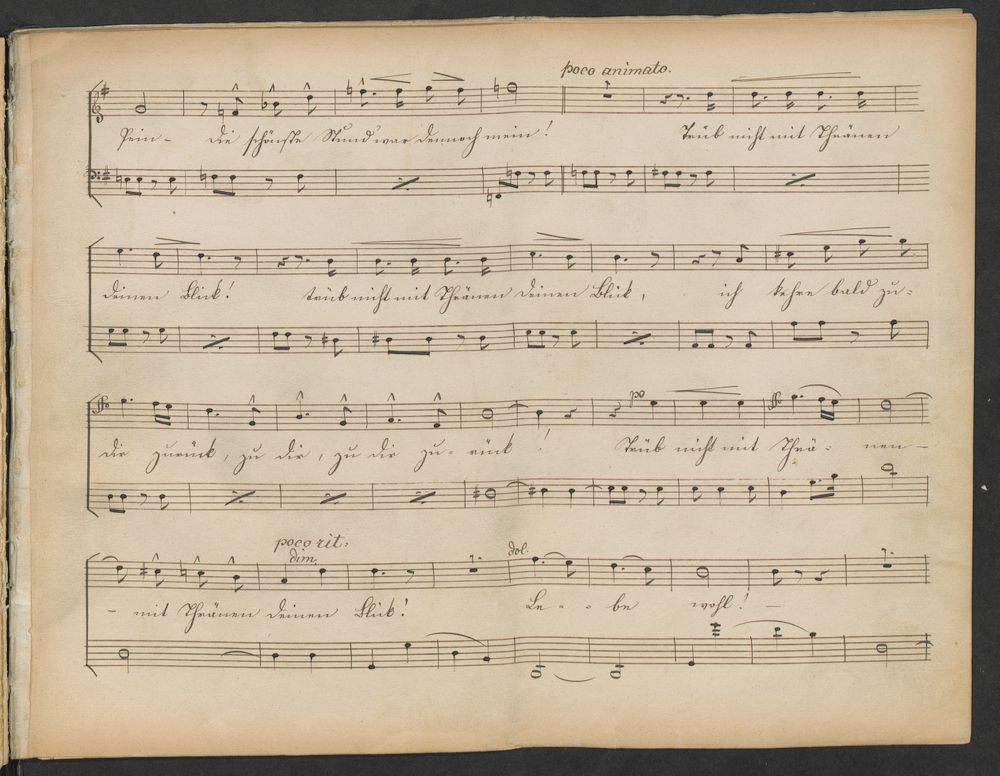 poco animato.
Pein - die schönste Stund war dennoch mein! Trüb nicht mit Thränen
deinen Blick! trüb nicht mit Thränen deinen Blick, ich kehre bald zu=
dir zurück, zu dir, zu dir zu= rück! Trüb nicht mit Thrä= nen -
poco rit.
dim. dol.
- mit Thränen deinen Blick! Le - - be wohl! -